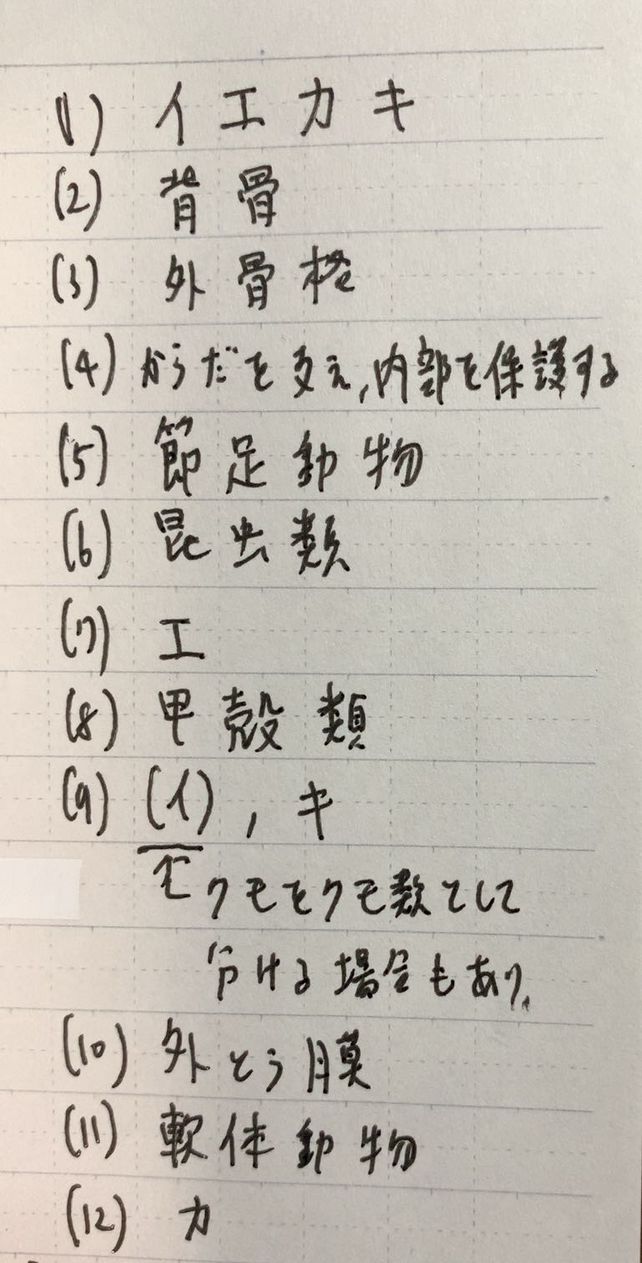 (1) イ エ カ キ
(2) 背骨
(3) 外骨格
(4) からだを支え,内部を保護する
(5) 節足動物
(6) 昆虫類
(7) エ
(8) 甲殻類
(9) (イ), キ
クモをクモ類として
分ける場合もあり。
(10) 外とう膜
(11) 軟体動物
(12) カ